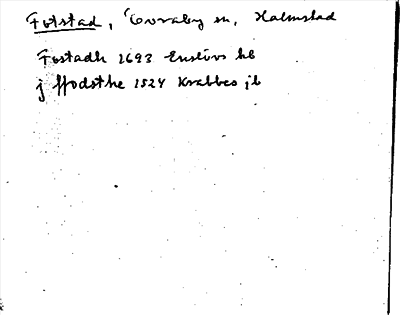 Futstad, Torraby sn, Halmstad
Fostadh 1693 Enslövs kb
j ffodsthe 1524 Krabbes jb